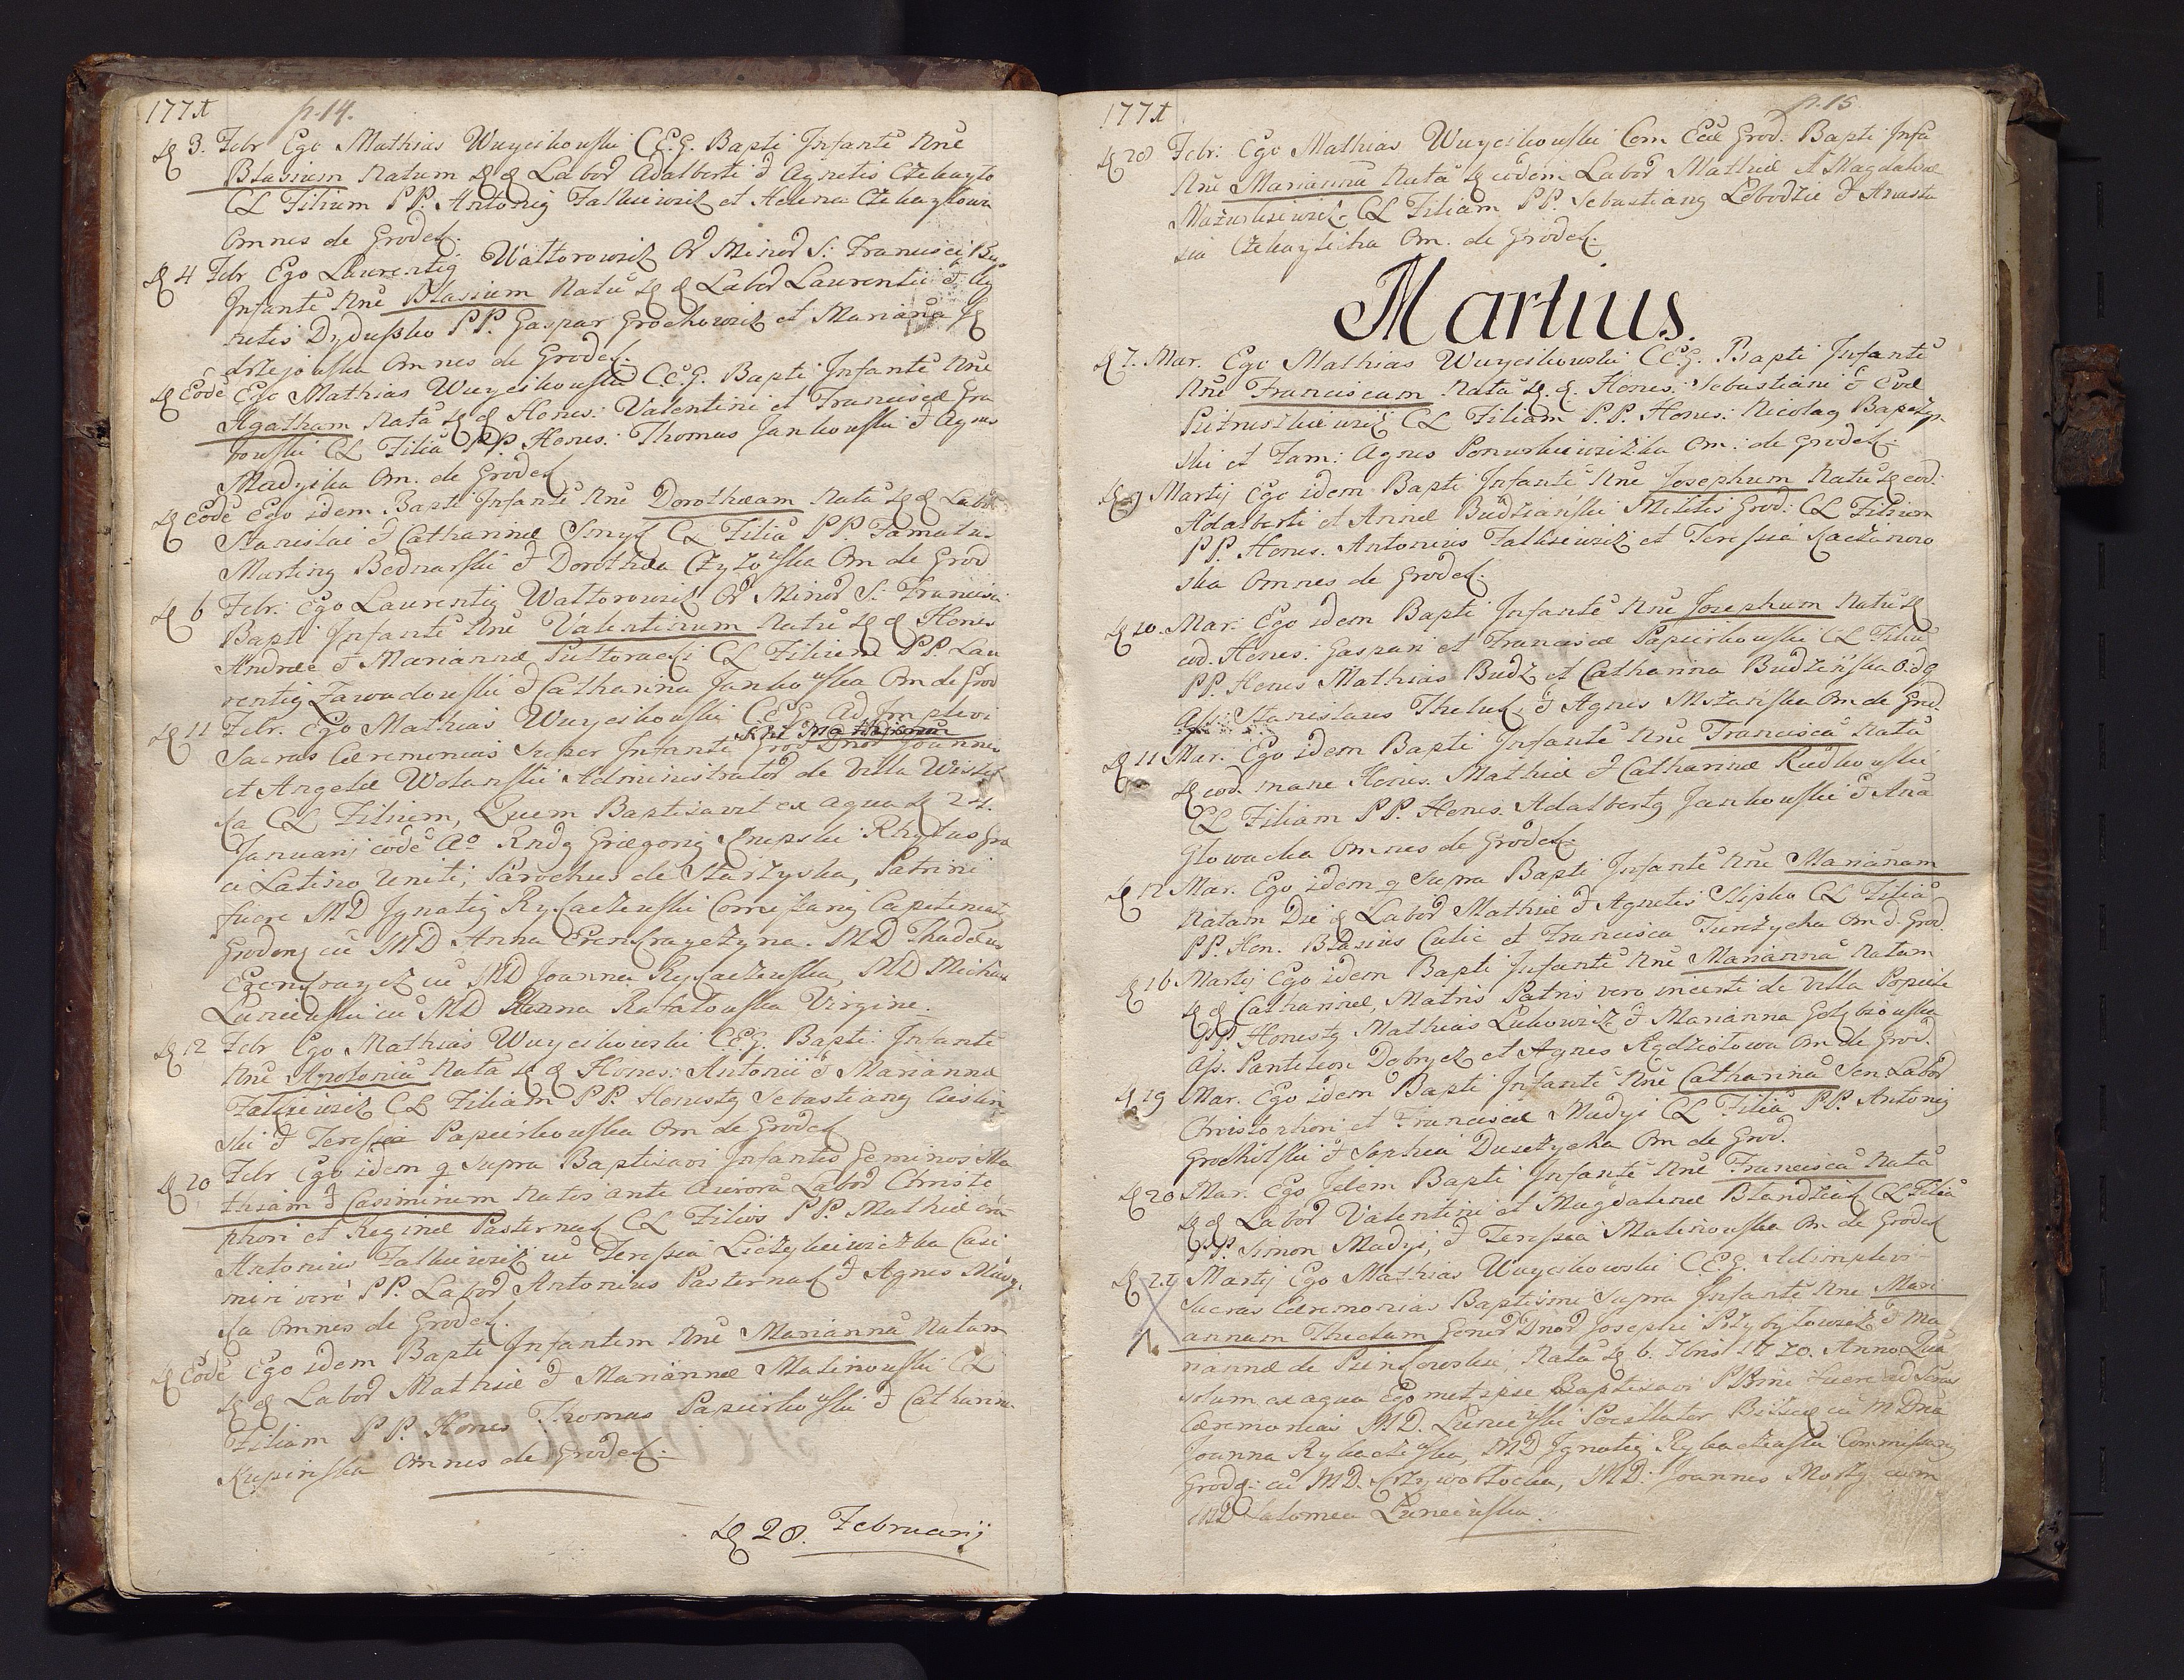 1771 p. 14.
D 3. Febr Ego Mathias Wuycikowski C.E.G. Bapti Infante Nne
Blasium Natum Labor Adalberti & Agnetis Czekayło
CL Filium PP. Antonig Falkiewicz et Helena Czekaylowa
Omnes de Grodek.
D 4 Febr Ego Laurentig Wattorowicz Or Minor S: Francisci Bap
Infante Nne Blasium Natu Labor Laurentii & Ag
netis Dyduszko PP. Gaspar Grochowicz et Marianna
Omnes de Grodek.
D Eode Ego Mathias Wuycikowski C.E.G. Bapti Infante Nne
Agatham Nata Hones: Valentini et Francisca Gra
bowski CL Filia PP. Hones: Thomas Jankowski & Agnes
Madyska Om. de Grodek
D Eode Ego idem Bapti Infante Nne Dorotheam Nata Labor
Stanislai & Catharinæ Smyk CL Filia PP. Famatus
Marting Bednarski & Dorothea Czyzowska Om de Grod
D 6 Febr: Ego Laurentig Wattorowicz Or Minor S: Francisci
Bapti Infante Nne Valentinum Natu Hones
Andreæ & Mariannæ Puttoracki CL Filium PP. Lau
rentig Zawadowski & Catharina Jankowska Om de Grod
D 11 Febr. Ego Mathias Wuycikowski C.E.G. Ad Implevi
Sacras Cæremonias Super Infante Grod Dnor Joannis
et Angelæ Wolanski Administrator de Villa
CL Filium, Quem Baptisavit ex aqua D 24.
Januarij eode Ao Rndg Gregorig Rhytus Gra
ci Latino Uniti, Parochus de Starzyska, Patrini
fuere MD Ignatig Rybaczewski Capiteneat
Grodeng cu MD Anna MD Thaddeus
cu MD Joanna Rybaczewska, MD Michael
Luniewski cu MD Anna Rafałowska Virgine.
D 12 Febr Ego Mathias Wuycikowski C.E.G. Bapti Infante
Nne Apoloniā Nata Hones: Antonii & Marianna
Falkiewicz CL Filiam PP. Honestg Sebastiang Cieslin
ski & Teressia Papierkowska Om de Grodek
D 20 Febr Ego idem q Supra Baptisavi Infantes Geminos Ma
thiam & Casimirum Natos ante Aurora Labor Christo
phori et Reginæ Pasternak CL Filios PP. Mathiæ erā
Antonius Falkiewicz cu Teressia Casi
miri verò PP. Labor Antonius Pasternak & Agnes Mady
ka Omnes de Grodek.
D Eode Ego idem Bapti Infantem Nne Mariannā Natam
Labor Mathiæ & Mariannæ Malinowski CL
Filiam PP. Hones Thomas Papierkowski & Catharina
Kupinska Omnes de Grodek.
D 28. Februarij
1771 p. 15
D 28 Febr: Ego Mathias Wuycikowski Com Ecæ Grod: Bapti Infa
Nne Mariannā Nata eodem Labor Mathiæ & Magdalenæ
Mazurkiewicz CL Filiam PP. Sebastiang Łobodzic & Anasta
sia Czekaylicha Om. de Grodek.
Martius.
D 7. Mar. Ego Mathias Wuycikowski C.E.G. Bapti Infante
Nne Franciscam Nata Hones: Sebastiani & Evæ
Pietruszkiewicz CL Filiam P.P. Hones: Nicolag
ski et Fam: Agnes Ponurkiewiczka Om: de Grodek.
D 9 Martij Ego idem Bapti Infante Nne Josephum Natu eod:
Adalberti et Annæ Budzianski Militis Grod: CL Filium
PP. Hones. Antonius Falkiewicz et Teressia Kaczanow
ska Omnes de Grodek.
D 10. Mar: Ego idem Bapti Infante Nne Josephum Natu
eod. Hones: Gaspari et Franciscæ Papierkowski CL Filiu
PP. Hones Mathias Budz et Catharina Budzanska
Ass: Stanislaus & Agnes Om de Grod.
D 11 Mar. Ego idem Bapti Infante Nne Franciscā Nata
eod. mane Hones. Mathiæ & Catharinæ Rudkowski
CL Filiam PP. Hones. Adalbertg Jankowski & Anā
Głowacka Omnes de Grodek.
D 12 Mar. Ego idem q Supra Bapti Infante Nne Mariānam
Natam Die Labor Mathiæ & Agnetis CL Filia
PP. Hon. Blasius et Francisca Om d. Grod
D 16 Martij Ego idem Bapti Infante Nne Mariannā Natam
Catharinæ, Matris Patris vero incerti de Villa
PP. Honestg Mathias Lukowicz & Marianna Gołębiowska
Ass. Panteleon Dobrycz et Agnes Om de Grod.
D 19 Mar. Ego idem Bapti Infante Nne Catharinā Sen Labor
Christophori et Franciscæ Madyi CL Filiā PP. Antonig
Grocholski & Sophia Om de Grod.
D 20 Mar. Ego Idem Bapti Infante Nne Franciscā Natā
Labor Valentini et Magdalenæ CL Filiā
PP. Simon Madyi, & Teressia Malinowska Om de Grodek
D 21 Martij Ego Mathias Wuycikowski C.E.G. Adimplevi
Sacras Cæremonias Baptismi Supra Infante Nne Mari
annam Theclam Gener Dnor Josephi Przybyłowicz & Ma
riannæ de Nata D 6. 7bris 1770. Anno Qua
solum ex aqua Egometipse Baptisavi PPrini fuere ad Sacras
Cæremonias MD. Luniewski cu MDna
Joanna Rybaczewska, MD Ignatig Rybaczewski Commissarig
Grodg: cu MD. MD: Joannes cum
MD Salomea Luniewska.